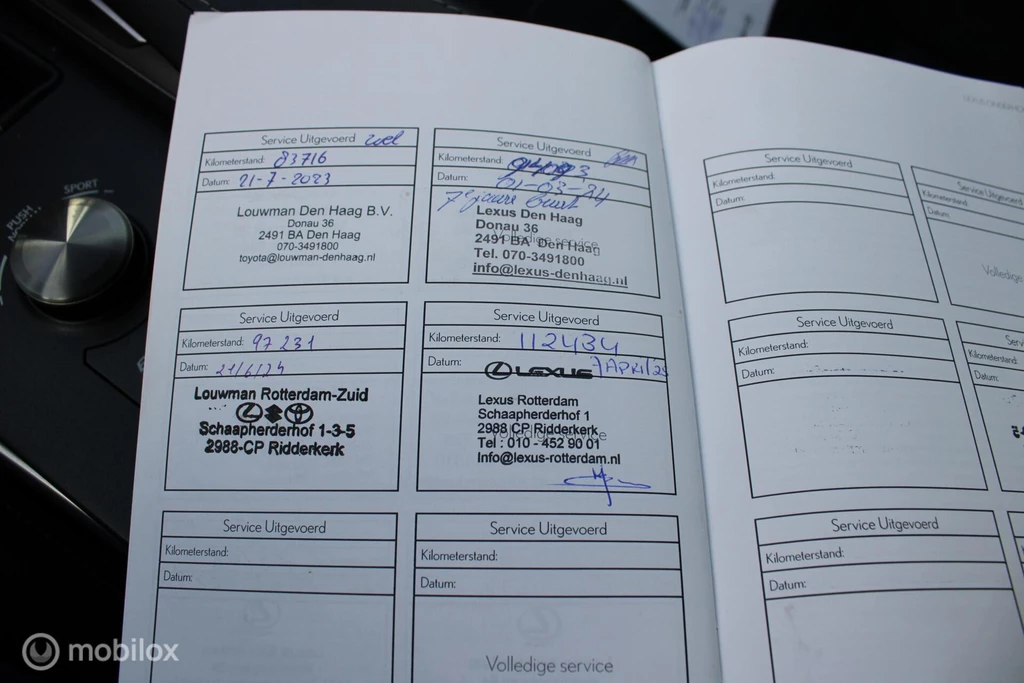 SPORT
PUSH
Service Uitgevoerd
Kilometerstand: 83716
Datum: 21-7-2023
Louwman Den Haag B.V.
Donau 36
2491 BA Den Haag
070-3491800
toyota@louwman-denhaag.nl
Service Uitgevoerd
Kilometerstand:
Datum: 01-03-24
7e jaars beurt
Lexus Den Haag
Donau 36
Volledige service
2491 BA Den Haag
Tel. 070-3491800
info@lexus-denhaag.nl
Service Uitgevoerd
Kilometerstand: 97 231
Datum: 21/6/24
Louwman Rotterdam-Zuid
Schaapherderhof 1-3-5
2988-CP Ridderkerk
Service Uitgevoerd
Kilometerstand: 112434
Datum: 7 April/25
LEXUS
Lexus Rotterdam
Schaapherderhof 1
2988 CP Ridderkerk
Volledige service
Tel : 010 - 452 90 01
Info@lexus-rotterdam.nl
Service Uitgevoerd
Kilometerstand:
Datum:
Service Uitgevoerd
Kilometerstand:
Datum:
Volledige service
Service Uitgevoerd
Kilometerstand:
Datum:
Service Uitgevoerd
Kilometerstand:
Datum:
Volledige
Service Uitgevoerd
Kilometerstand:
Datum:
Kilometerstand:
Datum:
Service Uitgevoerd
Kilometerstand:
Datum:
mobilox